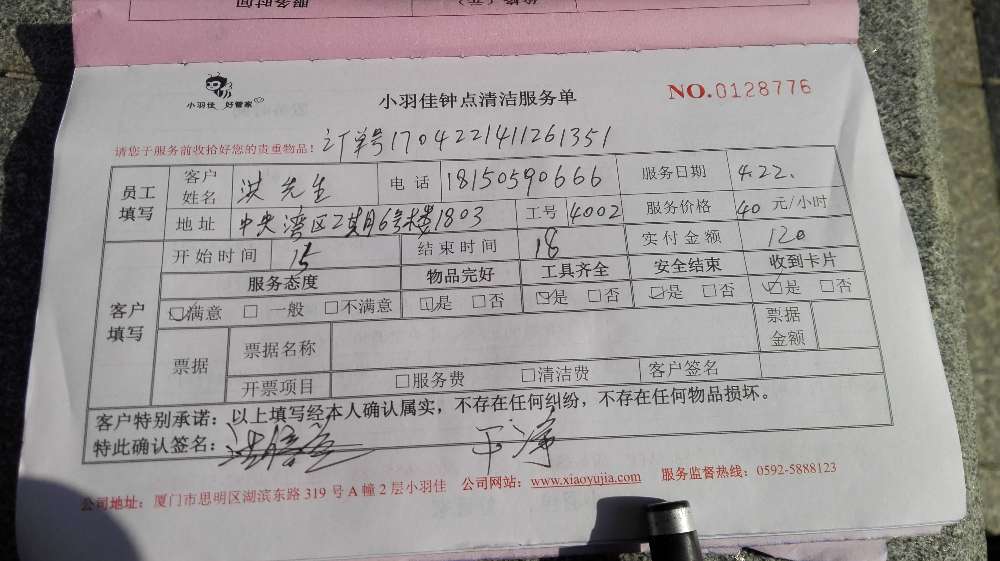 服务时间
小羽佳 好管家
小羽佳钟点清洁服务单
NO.0128776
请您于服务前收拾好您的贵重物品！
订单号1704221411261351
员工填写 客户姓名 洪先生 电话 18150590666 服务日期 4.22.
地址 中央湾区2期6号楼1803 工号 4002 服务价格 40 元/小时
客户填写 开始时间 15 结束时间 18 实付金额 120
服务态度 物品完好 工具齐全 安全结束 收到卡片
☑满意 □一般 □不满意 ☑是 □否 ☑是 □否 ☑是 □否 ☑是 □否
票据 票据名称 票据金额
开票项目 □服务费 □清洁费 客户签名
客户特别承诺：以上填写经本人确认属实，不存在任何纠纷，不存在任何物品损坏。
特此确认签名： 干净
公司地址：厦门市思明区湖滨东路 319 号 A 幢 2 层小羽佳 公司网站：www.xiaoyujia.com 服务监督热线：0592-5888123